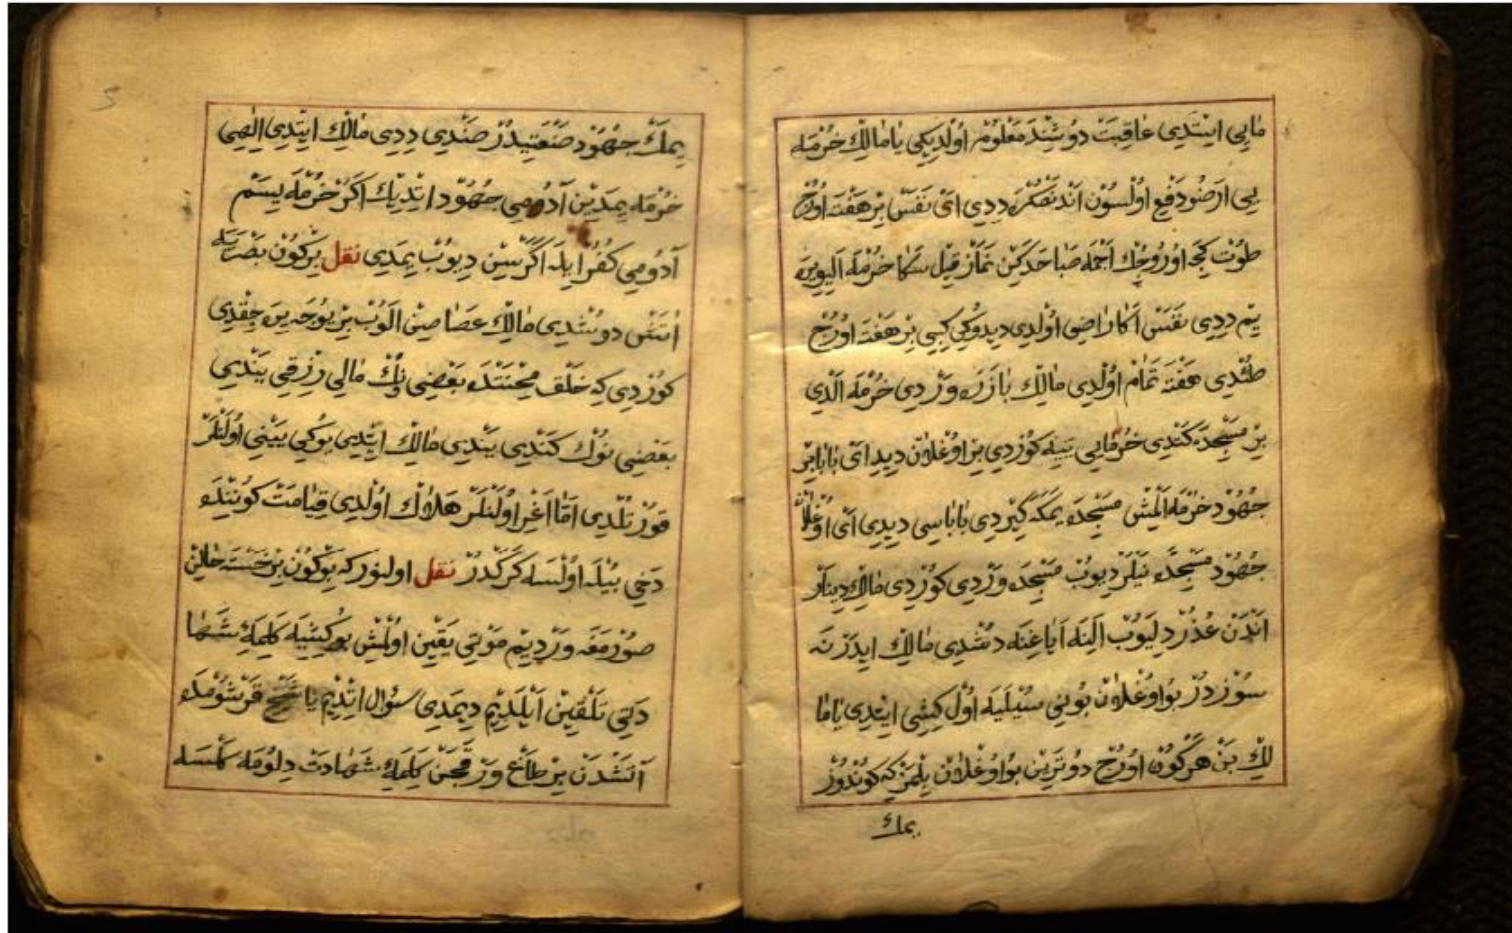 مايى ايتدى عاقبت دوشنده معلوم اولديكى يا مالك خرمه
يى ارضو دفع اولسون اندنصكره ددى اى نفس بر هفته اورج
طوت كجه اوروجك اجمه صباحدكين نماز قيل سكا خرمه اليويره
يم ددى نفس اكا راضى اولدى ديدوكى كبى بر هفته اورج
طتدى هفته تمام اولدى مالك بازره وردى خرمه الدى
بر مسجده كندى خرمايى ييه كوردى بر اوغلان ديدى اى بابا بر
جهود خرمه المش مسجده يمكه كيردى باباسى ديدى اى اوغلان
جهود مسجده نيلر ديوب مسجده وردى كوردى مالك دينار
اندن عذر دليوب الينه اياغنه دشدى مالك ايدر نه
سوزدر بو اوغلان بونى سيليه اول كيشى ايتدى يا ما
لك بن هركون اورج دوترين بو اوغلان يلمزكه كوندوز
يمك
يمك جهود صنعتيدر صندى ددى مالك ايتدى الهى
خرمه يمدين آدومى جهود اتديك اكر خرمه ييسم
آدومى كفر ايله اكرسن ديوب يمدى نقل بركون بصريه
اتش دوشدى مالك عصاصين الوب بر يوجه يره چقدى
كوردى كه خلق محنتده بعضى نك مالى رزقى يندى
بعضى نوك كندى يندى مالك ايتدى يوكى ييني اولنلر
قورتلدى اما اغر اولنلر هلاك اولدى قيامت كوننده
دخى بيله اولسه كركدر نقل اولنور كه بركون بر خسته حالن
صورمغه وردم موتى يقين اولمش بو كشيه كلمه شها
دتى تلقين ايلديم ديمدى سؤال اتديم يا شيخ قرشومده
آتشدن بر طاغ ور قچن كلمه شهادت دلومه كلسه